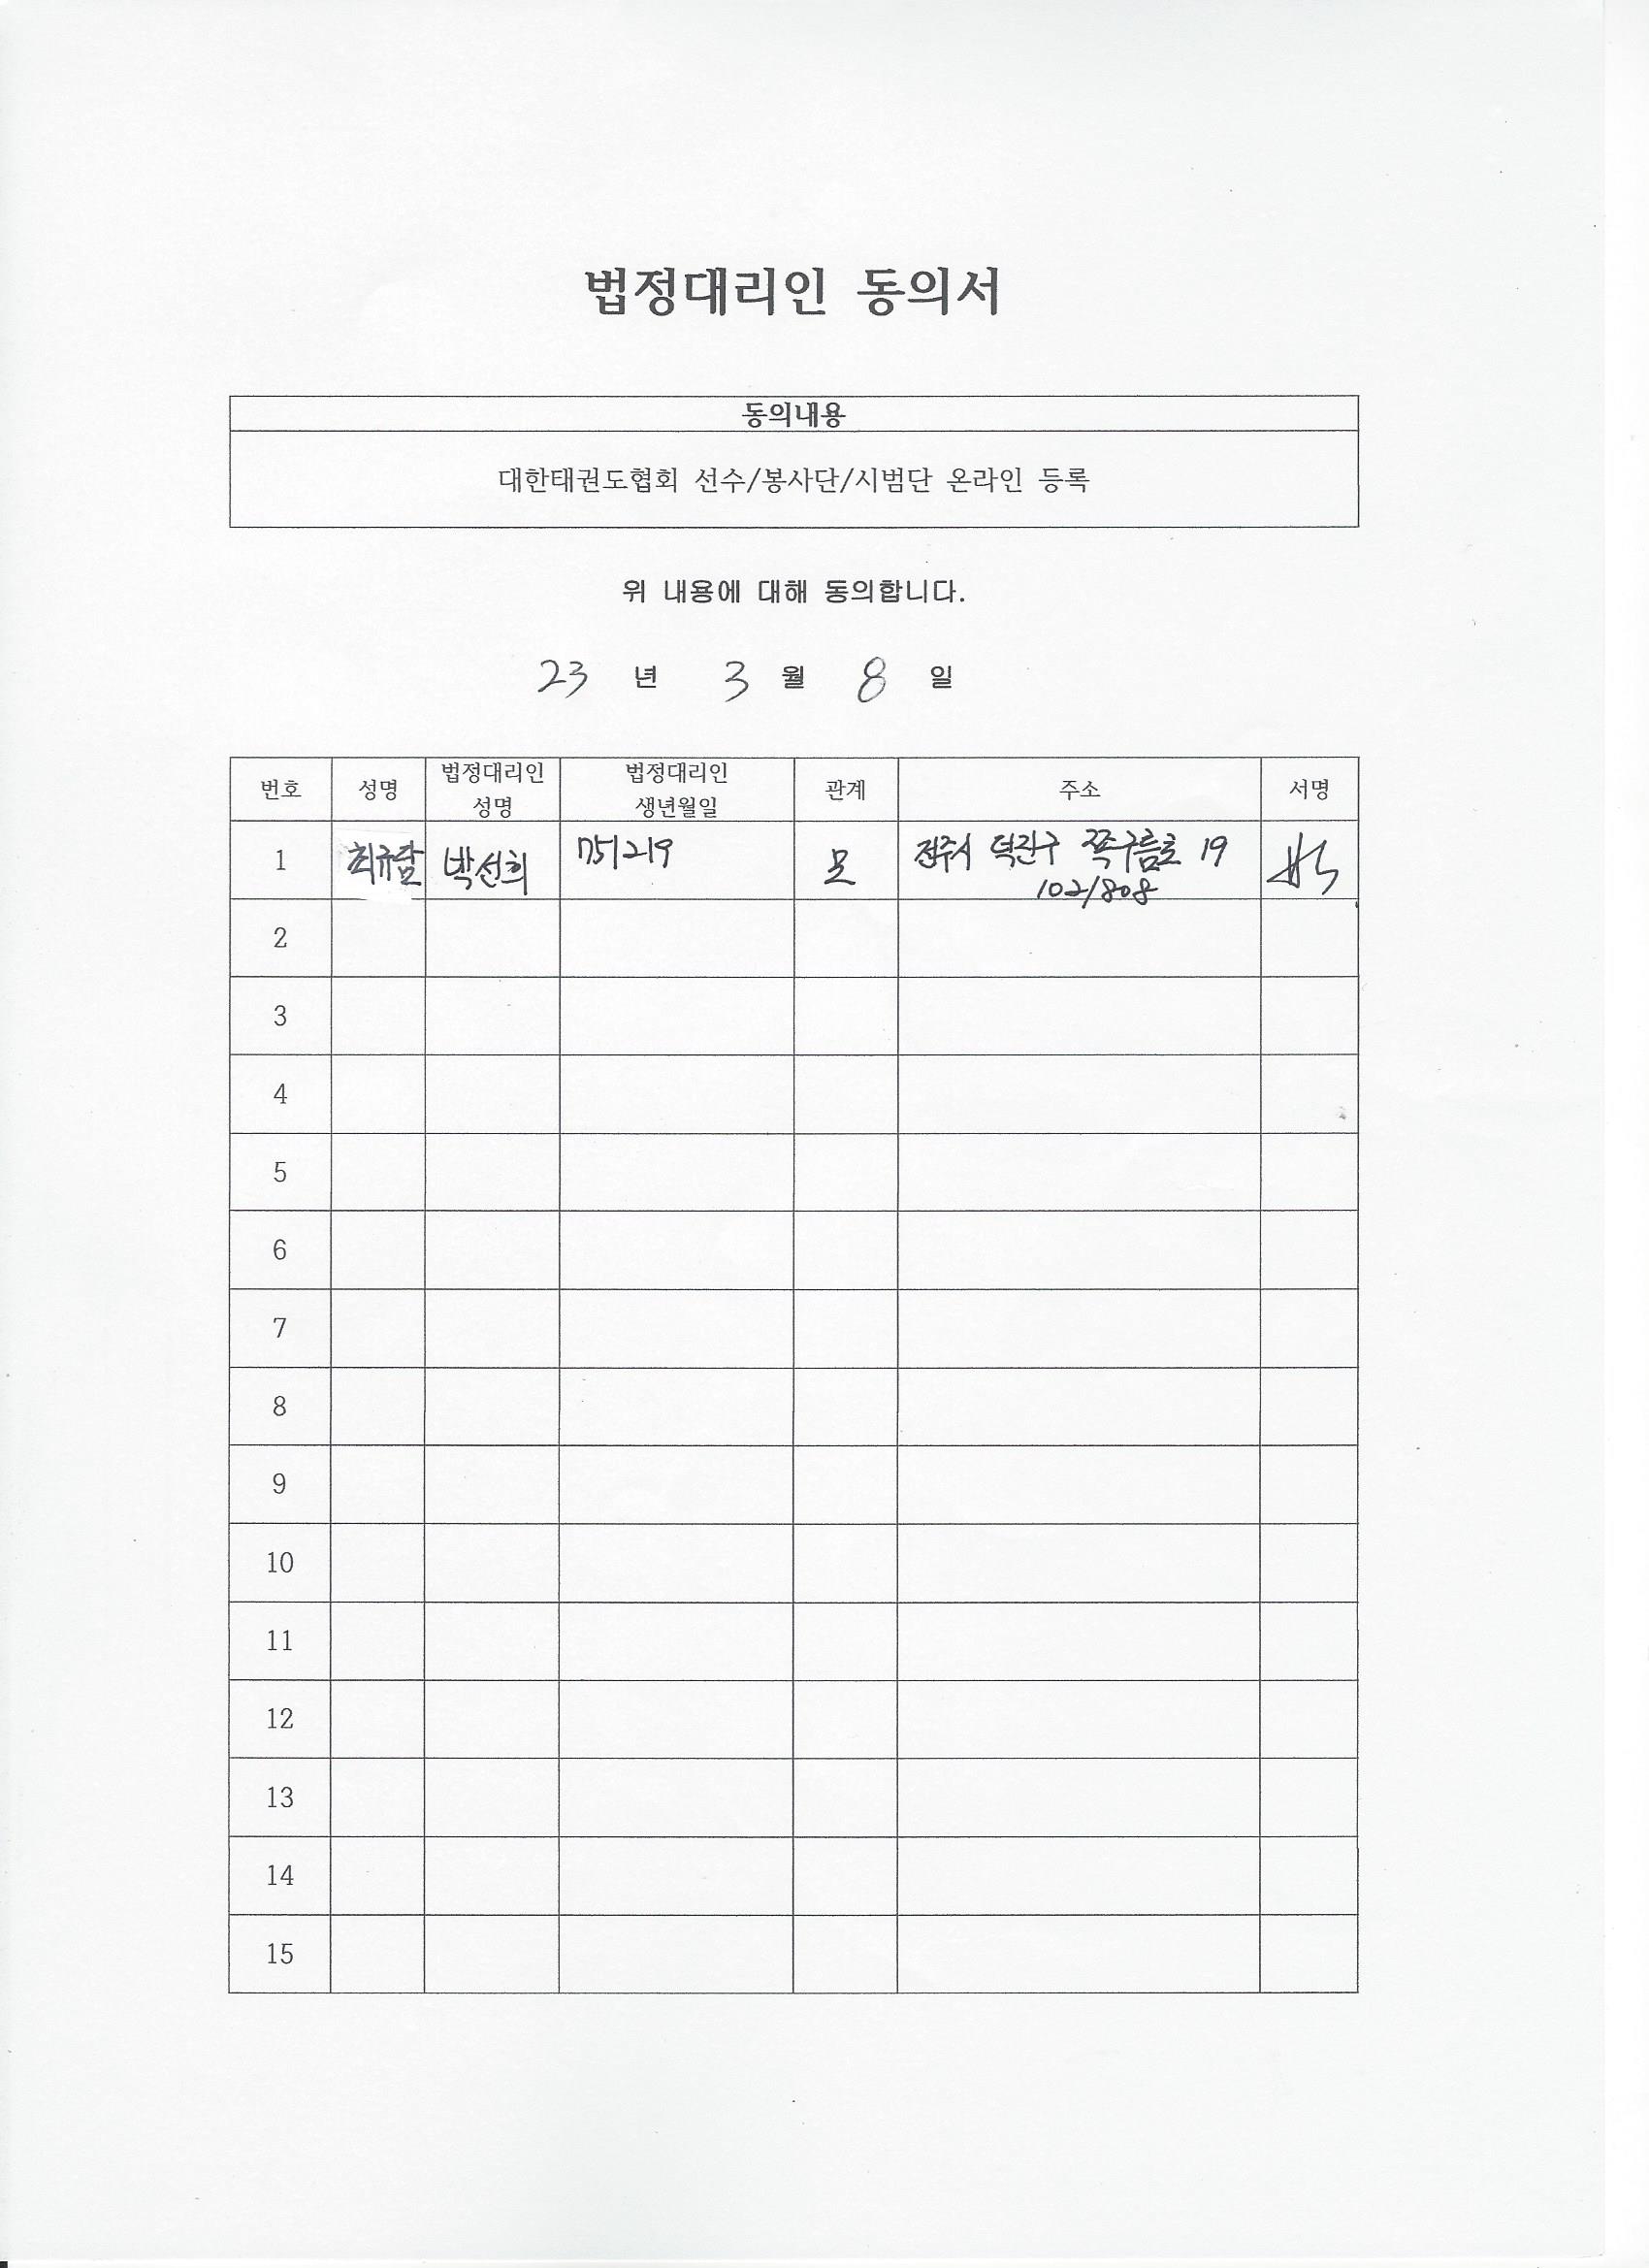 법정대리인 동의서
동의내용
대한태권도협회 선수/봉사단/시범단 온라인 등록
위 내용에 대해 동의합니다.
23 년 3 월 8 일
번호 성명 법정대리인 성명 법정대리인 생년월일 관계 주소 서명
1 최규담 박선희 751219 모 전주시 덕진구 쪽구름로 19
102/808
2
3
4
5
6
7
8
9
10
11
12
13
14
15